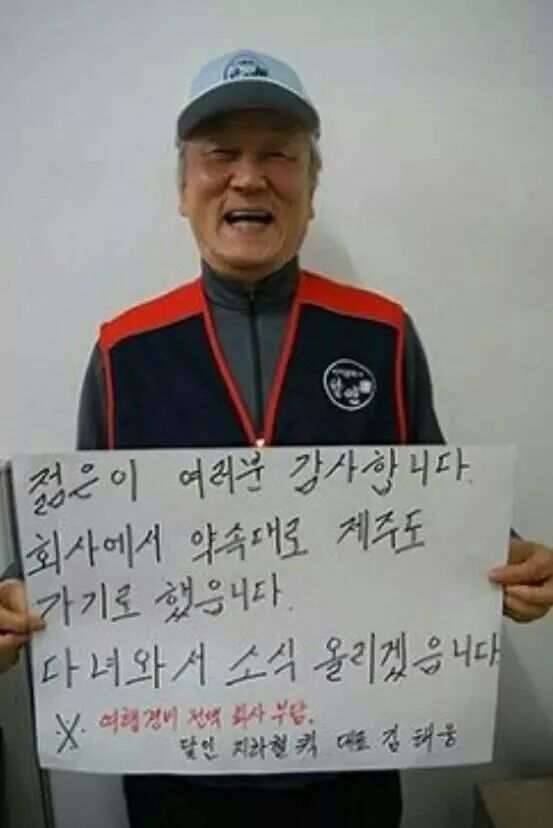 젊은이 여러분 감사합니다.
회사에서 약속대로 제주도
가기로 했읍니다.
다녀와서 소식 올리겠읍니다
※ 여행경비 전액 회사 부담.
달인 지하철 퀵 대표 김태웅
달인